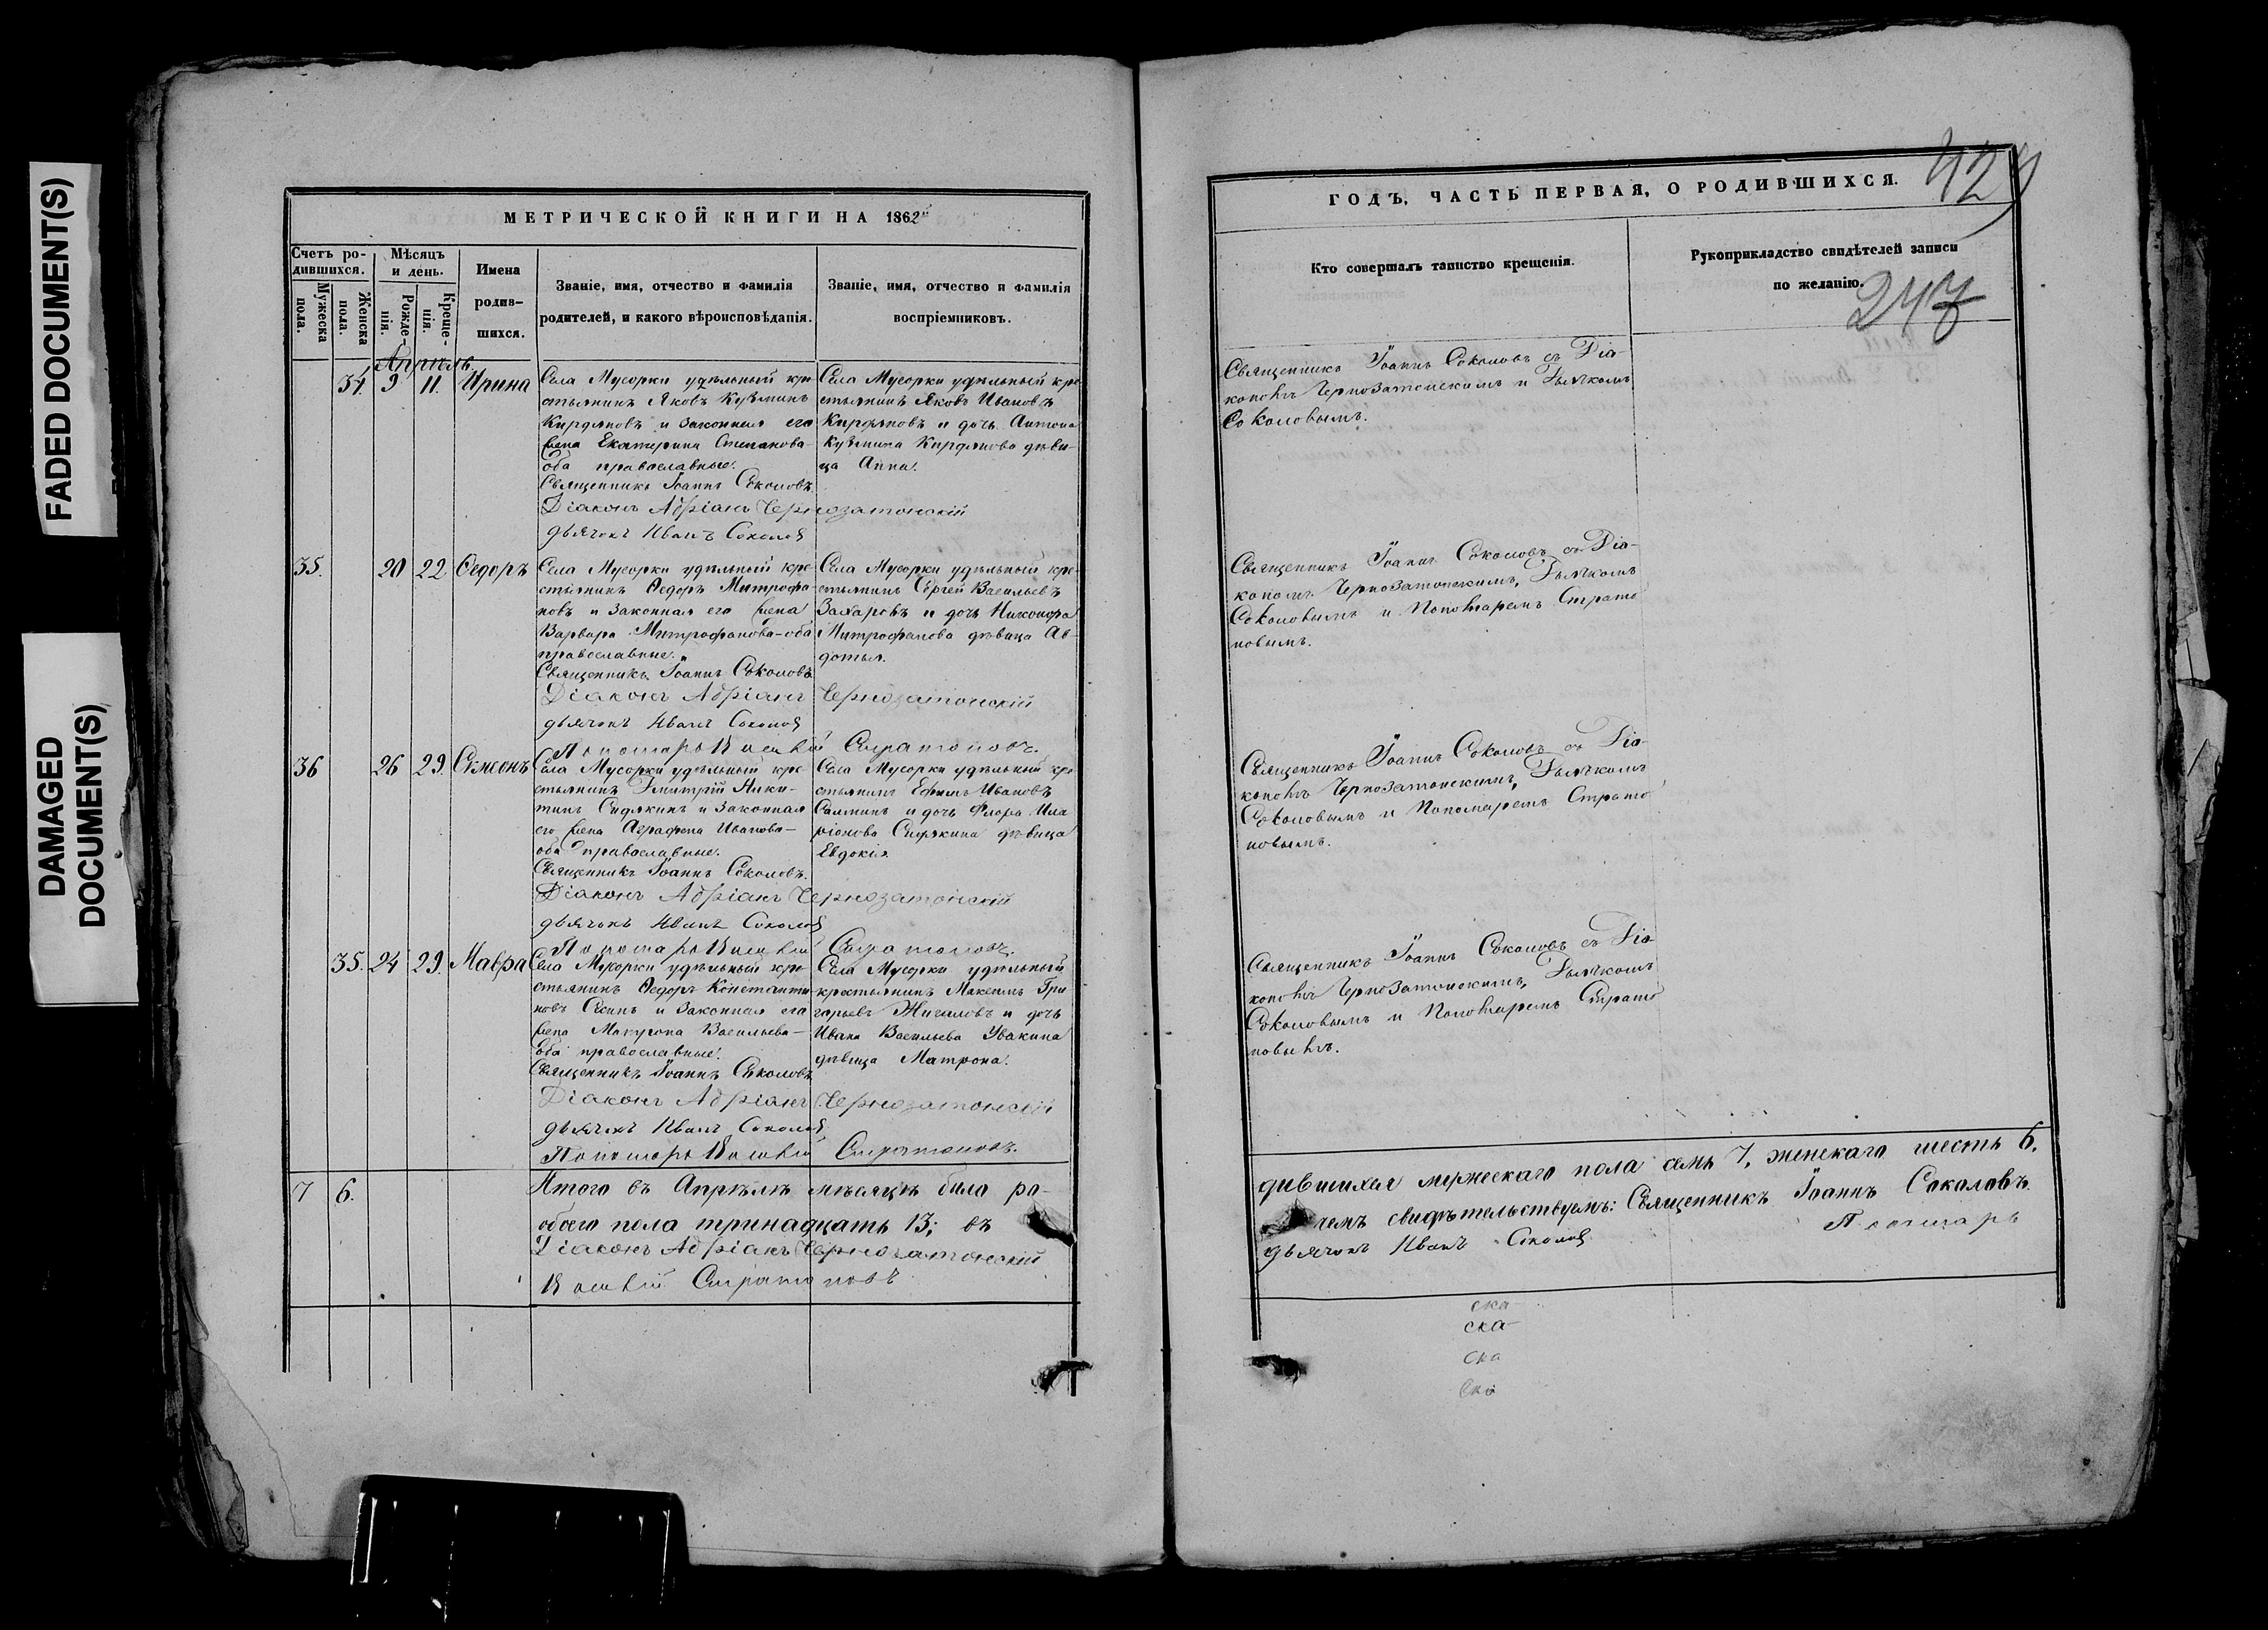 FADED DOCUMENT(S)
DAMAGED
DOCUMENT(S)
МЕТРИЧЕСКОЙ КНИГИ НА 1862
Счетъ ро-
дившихся.
Мужеска
пола.
Женска
пола.
Мѣсяцъ
и день.
Рожде-
нія.
Креще-
нія.
Имена
родив-
шихся.
Званіе, имя, отчество и фамилія
родителей, и какого вѣроисповѣданія.
Званіе, имя, отчество и фамилія
воспріемниковъ.
Апрѣль
34. 9 11. Ирина
Села Мусорки удѣльный кре-
стьянинъ Яковъ Кузминъ
Кирдяновъ и законная его
жена Екатерина Степанова
оба православные.
Священникъ Іоаннъ Соколовъ
Діаконъ Адріанъ Чернозатонскій
дьячокъ Иванъ Соколов
Села Мусорки удѣльный кре
стьянинъ Яковъ Ивановъ
Кирдяновъ и дочь Антона
Кузмина Кирдянова дѣви-
ца Анна.
35. 20 22 Ѳедоръ
Села Мусорки удѣльный кре-
стьянинъ Ѳедоръ Митрофа-
новъ и законная его жена
Варвара Митрофанова-оба
православные.
Священникъ Іоаннъ Соколовъ
Діаконъ Адріанъ Чернозатонскій
дьячокъ Иванъ Соколов
Пономарь Стратоновъ.
Села Мусорки удѣльный кре-
стьянинъ Сергей Васильевъ
Захаровъ и дочь Никонора
Митрофанова дѣвица Ав-
дотья.
36 26 29. Симеонъ
Села Мусорки удѣльный кре-
стьянинъ Дмитрій Ники-
тинъ Сидякинъ и законная
его жена Аграфена Иванова-
оба православные.
Священникъ Іоаннъ Соколовъ.
Діаконъ Адріанъ Чернозатонскій
дьячокъ Иванъ Соколов
Пономарь Стратоновъ.
Села Мусорки удѣльный кре
стьянинъ Ефимъ Ивановъ
и дочь Флора Ила
ріонова Сидякина дѣвица
Евдокія.
35. 24 29. Мавра
Села Мусорки удѣльный кре-
стьянинъ Ѳедоръ Константи
новъ и законная его
жена Васильева-
оба православные.
Священникъ Іоаннъ Соколовъ
Діаконъ Адріанъ Чернозатонскій
дьячокъ Иванъ Соколов
Пономарь Стратоновъ.
Села Мусорки удѣльный
крестьянинъ Максимъ Гри
горьевъ Жигаловъ и дочь
Ивана Васильева Увакина
дѣвица Матрона.
7 6. Итого въ Апрѣлѣ мѣсяцѣ было ро-
обоего пола тринадцать 13; въ
Діаконъ Адріанъ Чернозатонскій
Стратоновъ
429
ГОДЪ, ЧАСТЬ ПЕРВАЯ, О РОДИВШИХСЯ.
Кто совершалъ таинство крещенія.
Рукоприкладство свидѣтелей записи
по желанію.
247
Священникъ Іоаннъ Соколовъ съ Діа-
кономъ Чернозатонскимъ и Дьячкомъ
Соколовымъ.
Священникъ Іоаннъ Соколовъ съ Діа-
кономъ Чернозатонскимъ, Дьячкомъ
Соколовымъ и Пономаремъ Страто
новымъ.
Священникъ Іоаннъ Соколовъ съ Діа-
кономъ Чернозатонскимъ, Дьячкомъ
Соколовымъ и Пономаремъ Страто
новымъ.
Священникъ Іоаннъ Соколовъ съ Діа-
кономъ Чернозатонскимъ, Дьячкомъ
Соколовымъ и Пономаремъ Страто
новымъ.
дившихся мужескаго пола семь 7, женскаго шесть 6,
чемъ свидѣтельствуемъ: Священникъ Іоаннъ Соколовъ
дьячокъ Иванъ Соколов Пономарь
ска
ска
ска
ска